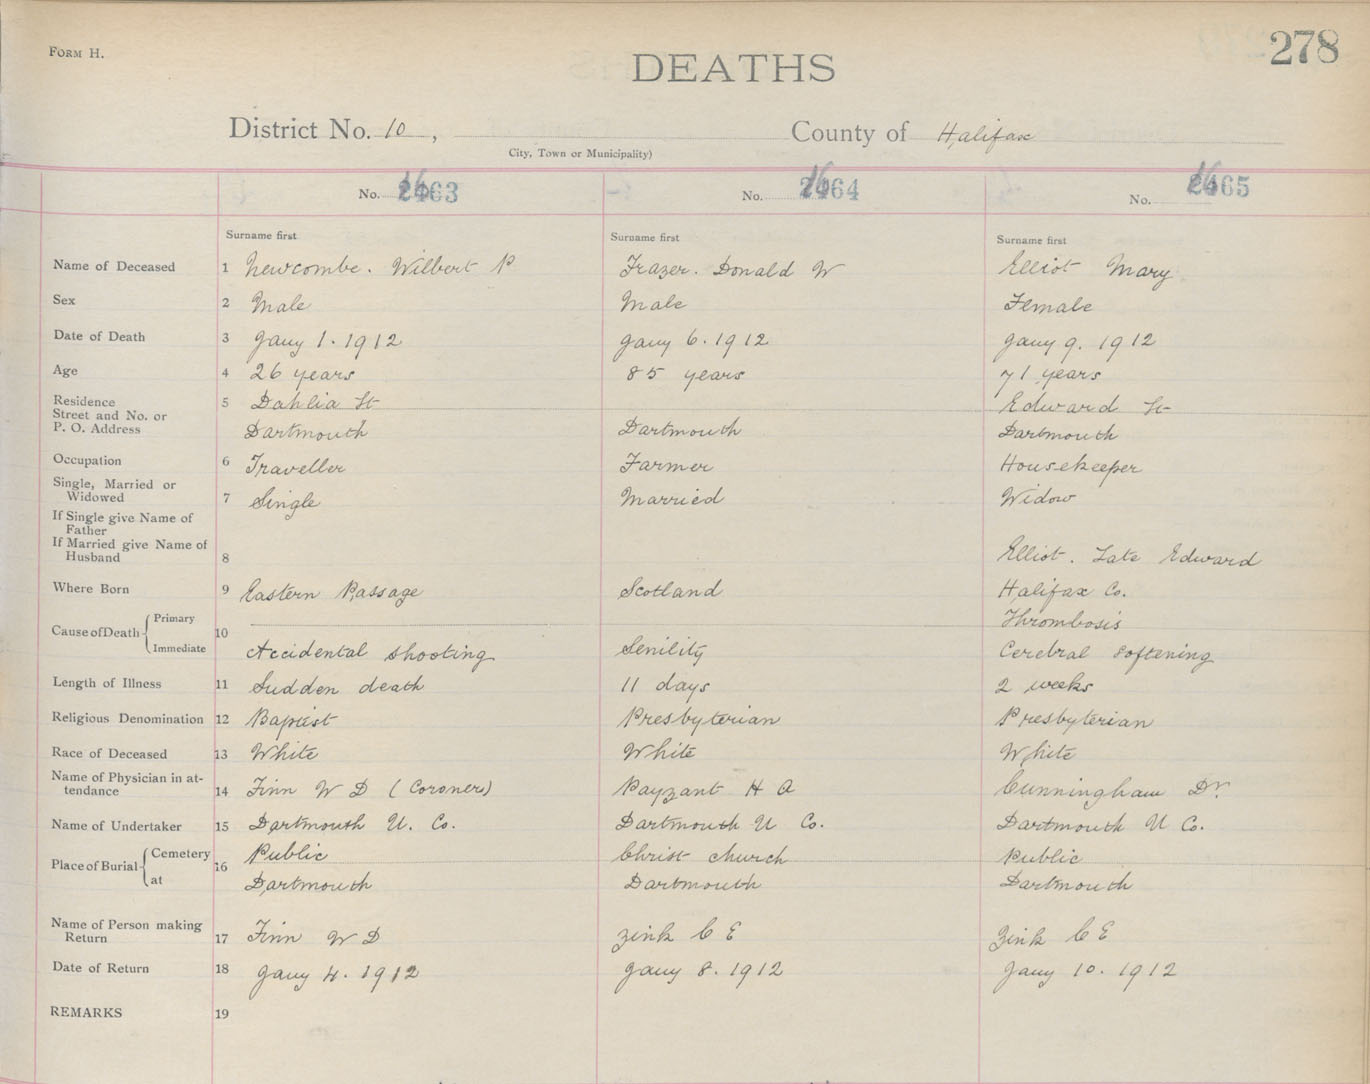 FORM H.
278
DEATHS
District No. 10, County of Halifax
City, Town or Municipality)
No. 2463 No. 2464 No. 2465
Surname first Surname first Surname first
Name of Deceased 1 Newcombe. Wilbert P Frazer. Donald W Elliot Mary
Sex 2 Male Male Female
Date of Death 3 Jany 1. 1912 Jany 6. 1912 Jany 9. 1912
Age 4 26 years 85 years 71 years
Residence 5 Dahlia St Edward St
Street and No. or
P. O. Address Dartmouth Dartmouth Dartmouth
Occupation 6 Traveller Farmer Housekeeper
Single, Married or
Widowed 7 Single Married Widow
If Single give Name of
Father
If Married give Name of
Husband 8 Elliot. Late Edward
Where Born 9 Eastern Passage Scotland Halifax Co.
Cause of Death 10 Primary Thrombosis
Immediate Accidental shooting Senility Cerebral Softening
Length of Illness 11 Sudden death 11 days 2 weeks
Religious Denomination 12 Baptist Presbyterian Presbyterian
Race of Deceased 13 White White White
Name of Physician in at-
tendance 14 Finn W D (Coroner) Payzant H A Cunningham Dr.
Name of Undertaker 15 Dartmouth U. Co. Dartmouth U Co. Dartmouth U Co.
Place of Burial 16 Cemetery Public Christ Church Public
at Dartmouth Dartmouth Dartmouth
Name of Person making
Return 17 Finn W D Zink C E Zink C E
Date of Return 18 Jany 4. 1912 Jany 8. 1912 Jany 10. 1912
REMARKS 19